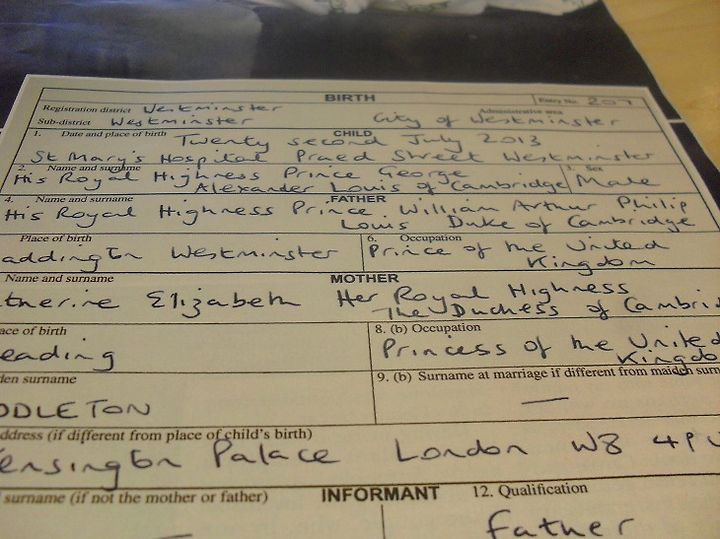 BIRTH Entry No. 207
Registration district Westminster Administrative area
Sub-district Westminster City of Westminster
1. Date and place of birth CHILD
Twenty second July 2013
St Mary's Hospital Praed Street Westminster
2. Name and surname 3. Sex
His Royal Highness Prince George Male
Alexander Louis of Cambridge
4. Name and surname FATHER
His Royal Highness Prince William Arthur Philip
Louis Duke of Cambridge
Place of birth 6. Occupation
addington Westminster Prince of the United
Kingdom
Name and surname MOTHER
therine Elizabeth Her Royal Highness
The Duchess of Cambri
ace of birth 8. (b) Occupation
eading Princess of the United
Kingdo
den surname 9. (b) Surname at marriage if different from maiden surn
DDLETON —
ddress (if different from place of child's birth)
ensington Palace London W8 4PU
surname (if not the mother or father) INFORMANT 12. Qualification
— Father